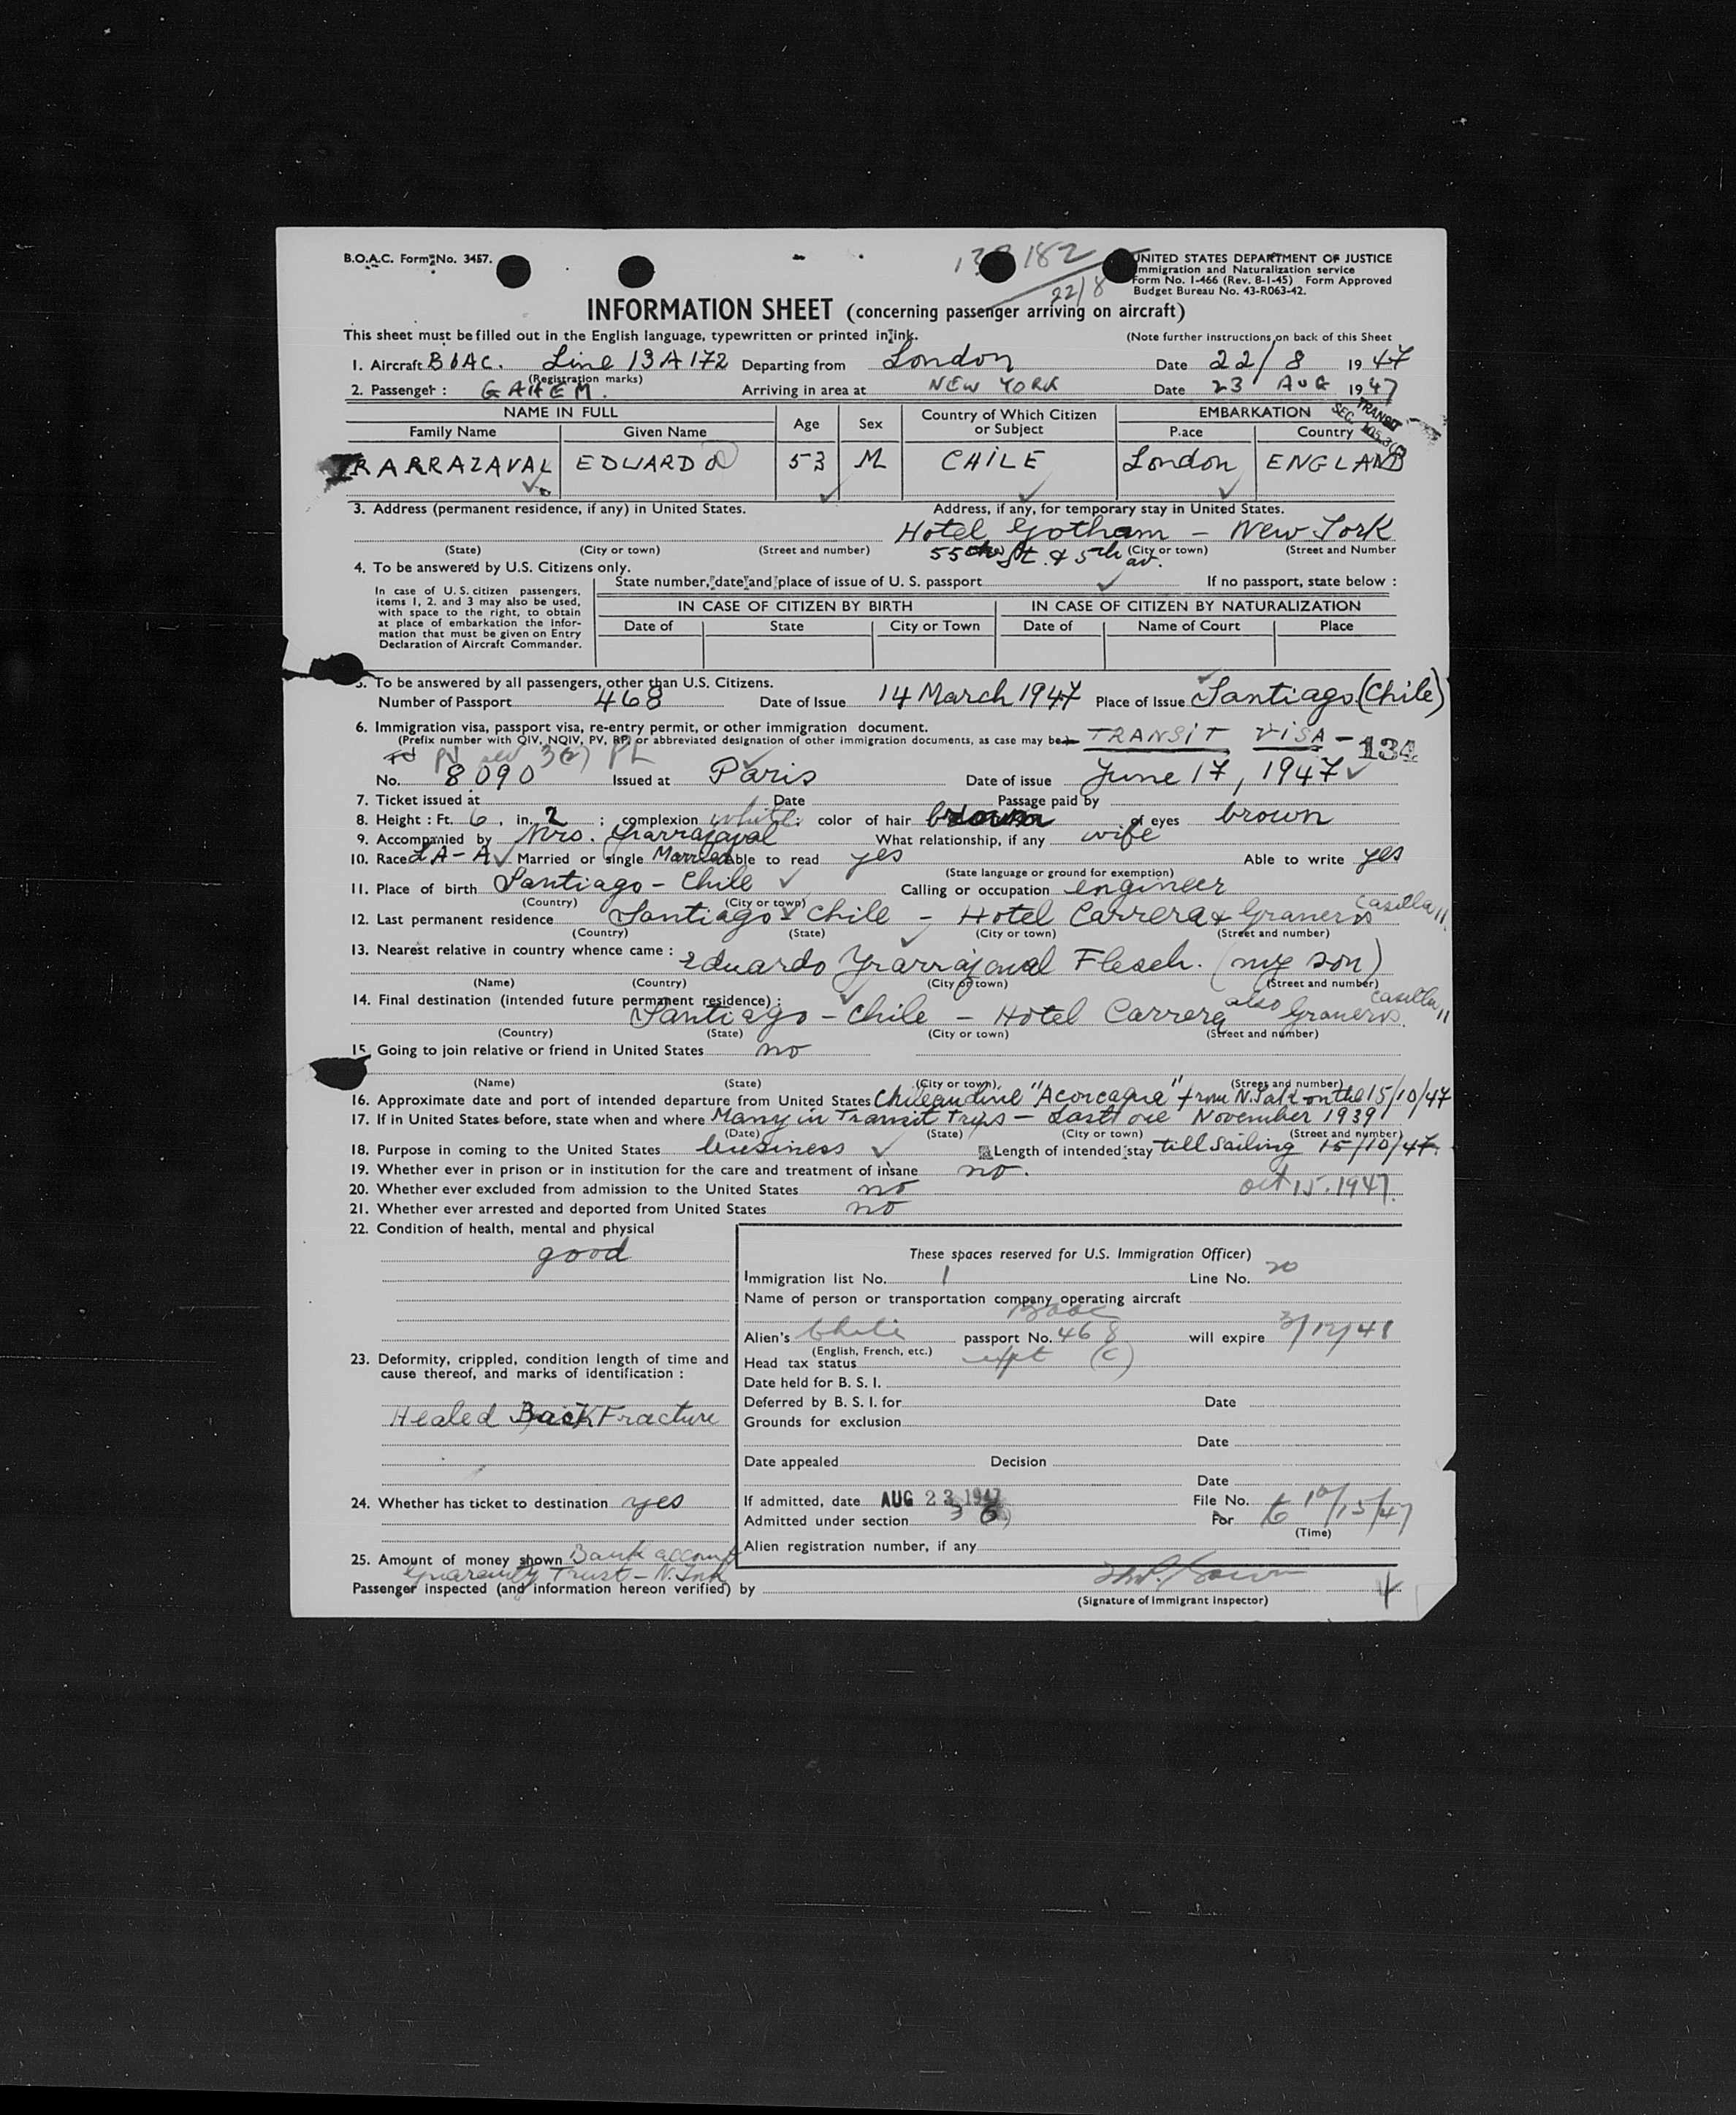 B.O.A.C. Form No. 3457.
182
22/8
UNITED STATES DEPARTMENT OF JUSTICE
Immigration and Naturalization service
Form No. I-466 (Rev. 8-1-45) Form Approved
Budget Bureau No. 43-R063-42.
INFORMATION SHEET (concerning passenger arriving on aircraft)
This sheet must be filled out in the English language, typewritten or printed in ink. (Note further instructions on back of this Sheet
1. Aircraft BOAC. Line 13A172 Departing from London Date 22/8 1947
(Registration marks)
2. Passenger : GAHEM. Arriving in area at NEW YORK Date 23 AUG 1947
TRANSIT
SEC.
NAME IN FULL Age Sex Country of Which Citizen or Subject EMBARKATION
Family Name Given Name Place Country
YRARRAZAVAL EDUARDO 53 M CHILE London ENGLAND
3. Address (permanent residence, if any) in United States. Address, if any, for temporary stay in United States.
Hotel Gotham - New York
(State) (City or town) (Street and number) 55th St. & 5th av. (City or town) (Street and Number
4. To be answered by U.S. Citizens only.
State number, date and place of issue of U. S. passport If no passport, state below :
In case of U.S. citizen passengers,
items 1, 2. and 3 may also be used,
with space to the right, to obtain
at place of embarkation the infor-
mation that must be given on Entry
Declaration of Aircraft Commander.
IN CASE OF CITIZEN BY BIRTH IN CASE OF CITIZEN BY NATURALIZATION
Date of State City or Town Date of Name of Court Place
5. To be answered by all passengers, other than U.S. Citizens.
Number of Passport 468 Date of Issue 14 March 1947 Place of Issue Santiago (Chile)
6. Immigration visa, passport visa, re-entry permit, or other immigration document.
(Prefix number with QIV, NQIV, PV, RP, or abbreviated designation of other immigration documents, as case may be.) TRANSIT VISA - 134
PV 3(2) PL
No. 8090 Issued at Paris Date of issue June 17, 1947
7. Ticket issued at Date Passage paid by
8. Height : Ft. 6, in. 2 ; complexion white. color of hair brown of eyes brown
9. Accompanied by Mrs. Yrarrazaval What relationship, if any wife
10. Race LA-A Married or single Married Able to read yes Able to write yes
(State language or ground for exemption)
11. Place of birth Santiago - Chile Calling or occupation engineer
(Country) (City or town)
12. Last permanent residence Santiago - Chile - Hotel Carrera & Graneros Casilla 11
(Country) (State) (City or town) (Street and number)
13. Nearest relative in country whence came : Eduardo Yrarrazaval Flesch. (my son)
(Name) (Country) (City or town) (Street and number)
14. Final destination (intended future permanent residence) :
Santiago - Chile - Hotel Carrera also Graneros Casilla 11
(Country) (State) (City or town) (Street and number)
15. Going to join relative or friend in United States no
(Name) (State) (City or town) (Street and number)
16. Approximate date and port of intended departure from United States Chilean Line "Aconcagua" from N.York on the 15/10/47
17. If in United States before, state when and where Many in Transit Trips - Last one November 1939
(Date) (State) (City or town) (Street and number)
18. Purpose in coming to the United States business Length of intended stay till sailing 15/10/47.
19. Whether ever in prison or in institution for the care and treatment of insane no.
20. Whether ever excluded from admission to the United States no oct 15. 1947.
21. Whether ever arrested and deported from United States no
22. Condition of health, mental and physical
good
23. Deformity, crippled, condition length of time and
cause thereof, and marks of identification :
Healed Back Fracture
24. Whether has ticket to destination yes
25. Amount of money shown Bank account
Guaranty Trust - N. York
These spaces reserved for U.S. Immigration Officer)
Immigration list No. 1 Line No. 20
Name of person or transportation company operating aircraft
BOAC
Alien's Chile passport No. 468 will expire
(English, French, etc.)
Head tax status expt (c)
Date held for B. S. I.
Deferred by B. S. I. for Date
Grounds for exclusion
Date
Date appealed Decision
Date
If admitted, date AUG 23 1947 File No.
Admitted under section 3 For to 10/15/47
(Time)
Alien registration number, if any
Passenger inspected (and information hereon verified) by
(Signature of Immigrant Inspector)